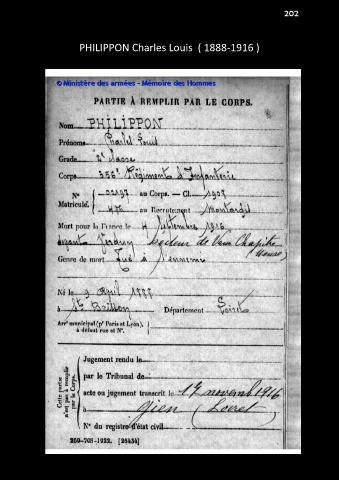 202
PHILIPPON Charles Louis ( 1888-1916 )
© Ministère des armées - Mémoire des Hommes
PARTIE À REMPLIR PAR LE CORPS.
Nom PHILIPPON
Prénoms Charles Louis
Grade 2e classe
Corps 356e Régiment d'Infanterie
N° 02197 au Corps. — Cl. 1908
Matricule. au Recrutement Montargis
Mort pour la France le 4 Septembre 1916
devant secteur de Vaux Chapitre
Meuse
Genre de mort Tué à l'ennemi
Né le 9 Avril 1888
à St Brisson Département Loiret
Arr^t municipal (p^r Paris et Lyon),
à défaut rue et N°.
Cette partie
n'est pas à remplir
par le Corps.
Jugement rendu le
par le Tribunal de
acte ou jugement transcrit le 17 novembre 1916
à Gien (Loiret)
N° du registre d'état civil
269-708-1922. [26434]